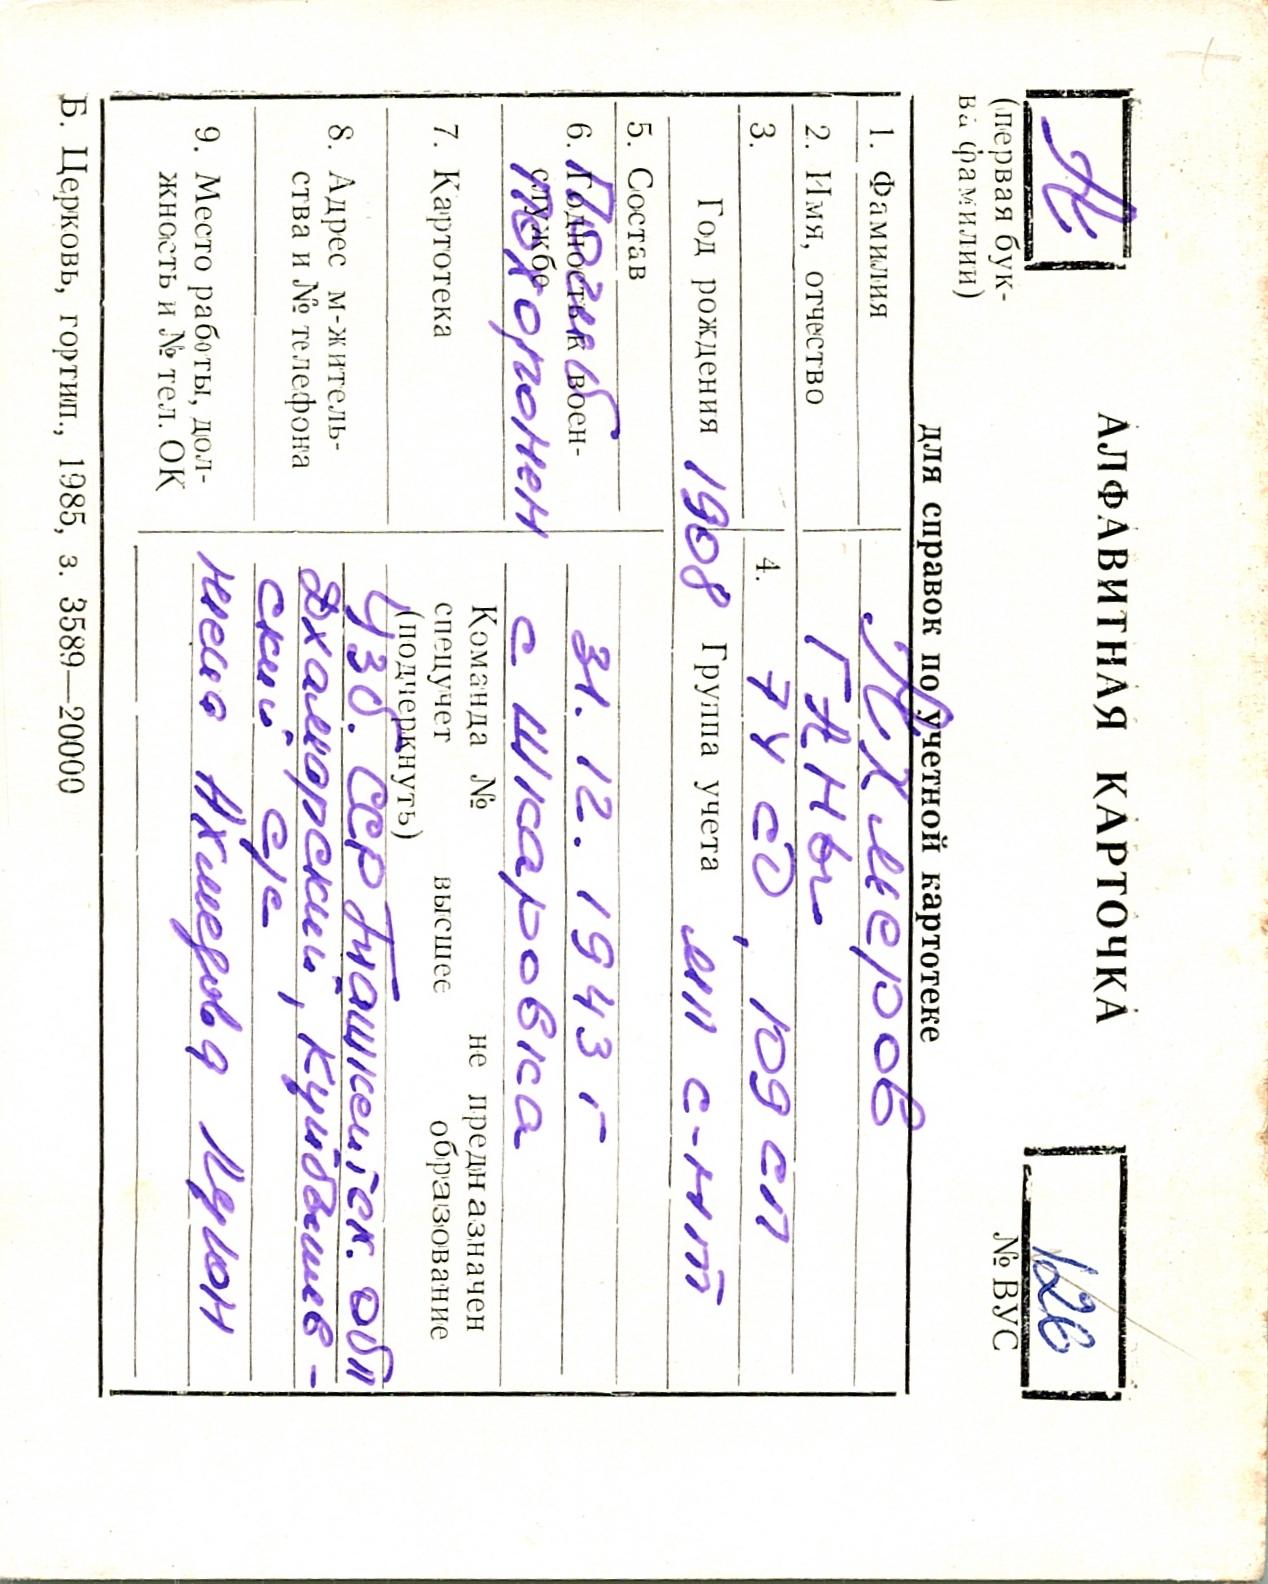 А
(первая бук-
ва фамилии)
АЛФАВИТНАЯ КАРТОЧКА
для справок по учетной картотеке
126
№ ВУС
1. Фамилия Ахмеров
2. Имя, отчество Ганы
3. 4. 74 сд, 109 сп
Год рождения 1908 Группа учета мл с-нт
5. Состав
6. Годность к воен-
службе
Погиб 31.12.1943 г
Похоронен с. Шкаровка
7. Картотека Команда № не предназначен
спецучет высшее образование
(подчеркнуть)
8. Адрес м-житель-
ства и № телефона
Узб. ССР Ташкентск. обл
Куйбышев-
ский с/с
9. Место работы, дол-
жность и № тел. ОК
жена Ахмедова
Б. Церковь, гортип., 1985, з. 3589—20000